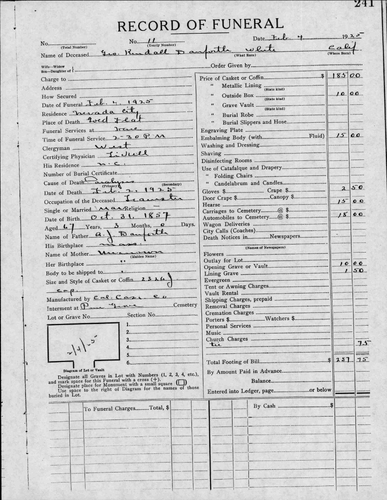 241
RECORD OF FUNERAL
No. No. 11 Date Feb 4 1925
(Total Number) (Yearly Number)
Name of Deceased Geo Kendall Danforth White Calif
(What Race) (Where Born)
Wife-Widow
Son-Daughter of Order Given by
Charge to
Address
How Secured
Date of Funeral Feb 1925
Residence Nevada City
Place of Death Red Flat
Funeral Services at
Time of Funeral Service 2-30 P.M
Clergyman West
Certifying Physician
His Residence N.C.
Number of Burial Certificate
Cause of Death
(Primary) (Secondary)
Date of Death Feb 2, 1925
Occupation of the Deceased Teamster
Single or Married Religion
Date of Birth Oct. 31, 1857
Aged 67 Years, 3 Months, 0 Days.
Name of Father A J Danforth
His Birthplace Mass
Name of Mother Unknown
(Maiden Name)
Her Birthplace "
Body to be shipped to
Size and Style of Casket or Coffin
Manufactured by Cal. Cas. Co
Interment at Pine Grove Cemetery
Lot or Grave No. Section No.
Diagram of Lot or Vault
Designate all Graves in Lot with Numbers (1, 2, 3, 4, etc.), and mark space for this Funeral with a cross (+).
Designate place for Monument with a small square
Use space to the right of Diagram for the names of those buried in Lot.
Price of Casket or Coffin $ 185 00
" Metallic Lining
(State Kind)
" Outside Box 10 00
(State Kind)
" Grave Vault
(State Kind)
" Burial Robe
" Burial Slippers and Hose
Engraving Plate
Embalming Body (with Fluid) 15 00
Washing and Dressing
Shaving
Disinfecting Rooms
Use of Catafalque and Drapery
" Folding Chairs
" Candelabrum and Candles
Gloves $ Crape $ 2 50
Door Crape $ Canopy $
Hearse 15 00
Carriages to Cemetery @ $
Automobiles to Cemetery @ $ 15 00
Wagon Deliveries
City Calls (Coaches)
Death Notices in Newspapers
(Names of Newspapers)
Flowers
Outlay for Lot
Opening Grave or Vault 10 00
Lining Grave 1 50
Evergreen
Tent or Awning Charges
Vault Rental
Shipping Charges, prepaid
Removal Charges
Cremation Charges
Porters $ Watchers $
Personal Services
Music
Church Charges
75
Total Footing of Bill $ 237 75
By Amount Paid in Advance
Balance
Entered into Ledger, page or below
To Funeral Charges Total $ By Cash $